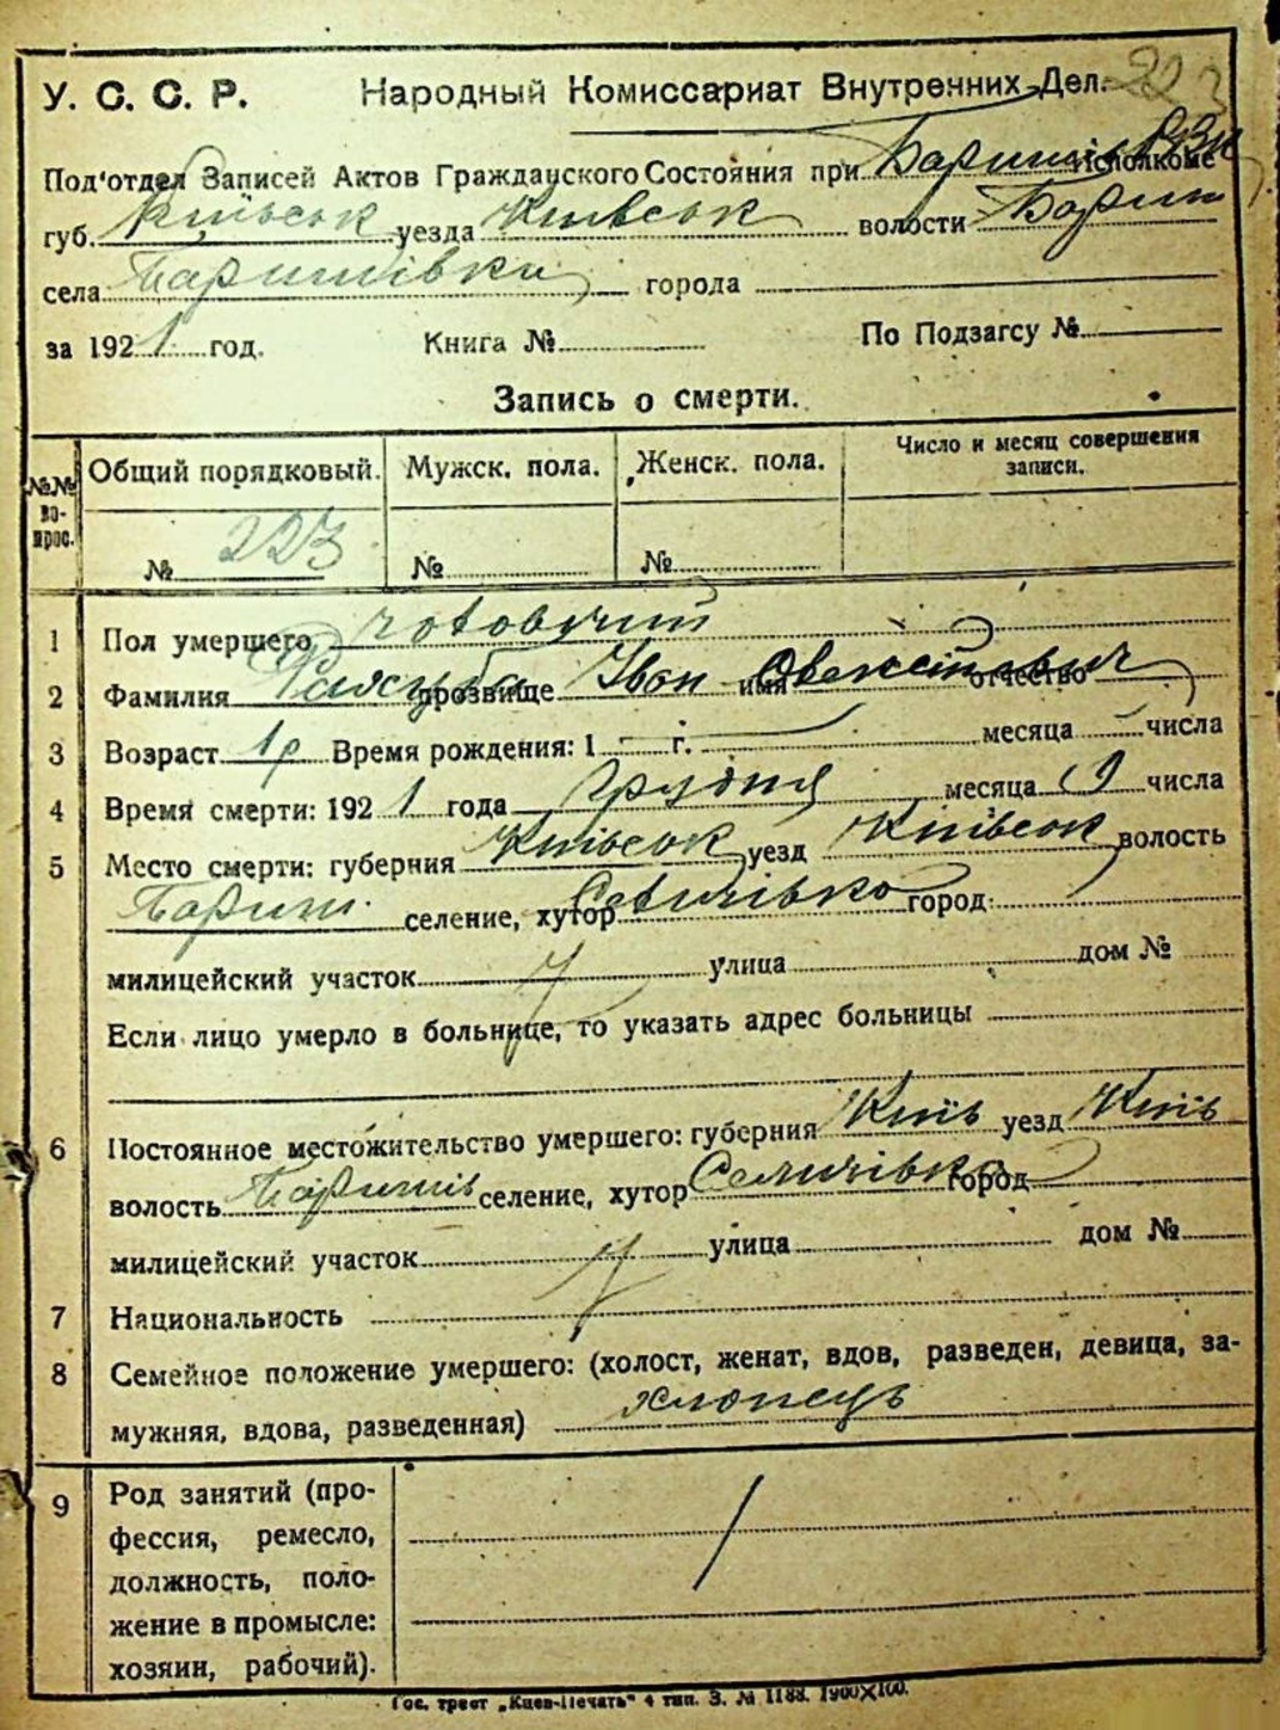 У. С. С. Р. Народный Комиссариат Внутренних Дел. 223
Под'отдел Записей Актов Гражданского Состояния при исполкоме
губ. Київськ уезда Київськ волости Бариш
села Баришівки города
за 1921 год. Книга № По Подзагсу №
Запись о смерти.
№№ вопрос. Общий порядковый. Мужск. пола. Женск. пола. Число и месяц совершения записи.
№ 223 № №
1 Пол умершего чоловучий
2 Фамилия прозвище Іван имя отчество
3 Возраст 1 р Время рождения: 1 г. месяца числа
4 Время смерти: 1921 года Грудня месяца 19 числа
5 Место смерти: губерния Київськ уезд Київськ волость
Бариш. селение, хутор Селичівка город
милицейский участок улица дом №
Если лицо умерло в больнице, то указать адрес больницы
6 Постоянное местожительство умершего: губерния Київ уезд Київ
волость Баришів селение, хутор Селичівка город
милицейский участок улица дом №
7 Национальность
8 Семейное положение умершего: (холост, женат, вдов, разведен, девица, за-
мужняя, вдова, разведенная) хлопець
9 Род занятий (про-
фессия, ремесло,
должность, поло-
жение в промысле:
хозяин, рабочий).
Гос. трест „Киев-Печать" 4 тип. З. № 1188. 1900X100.